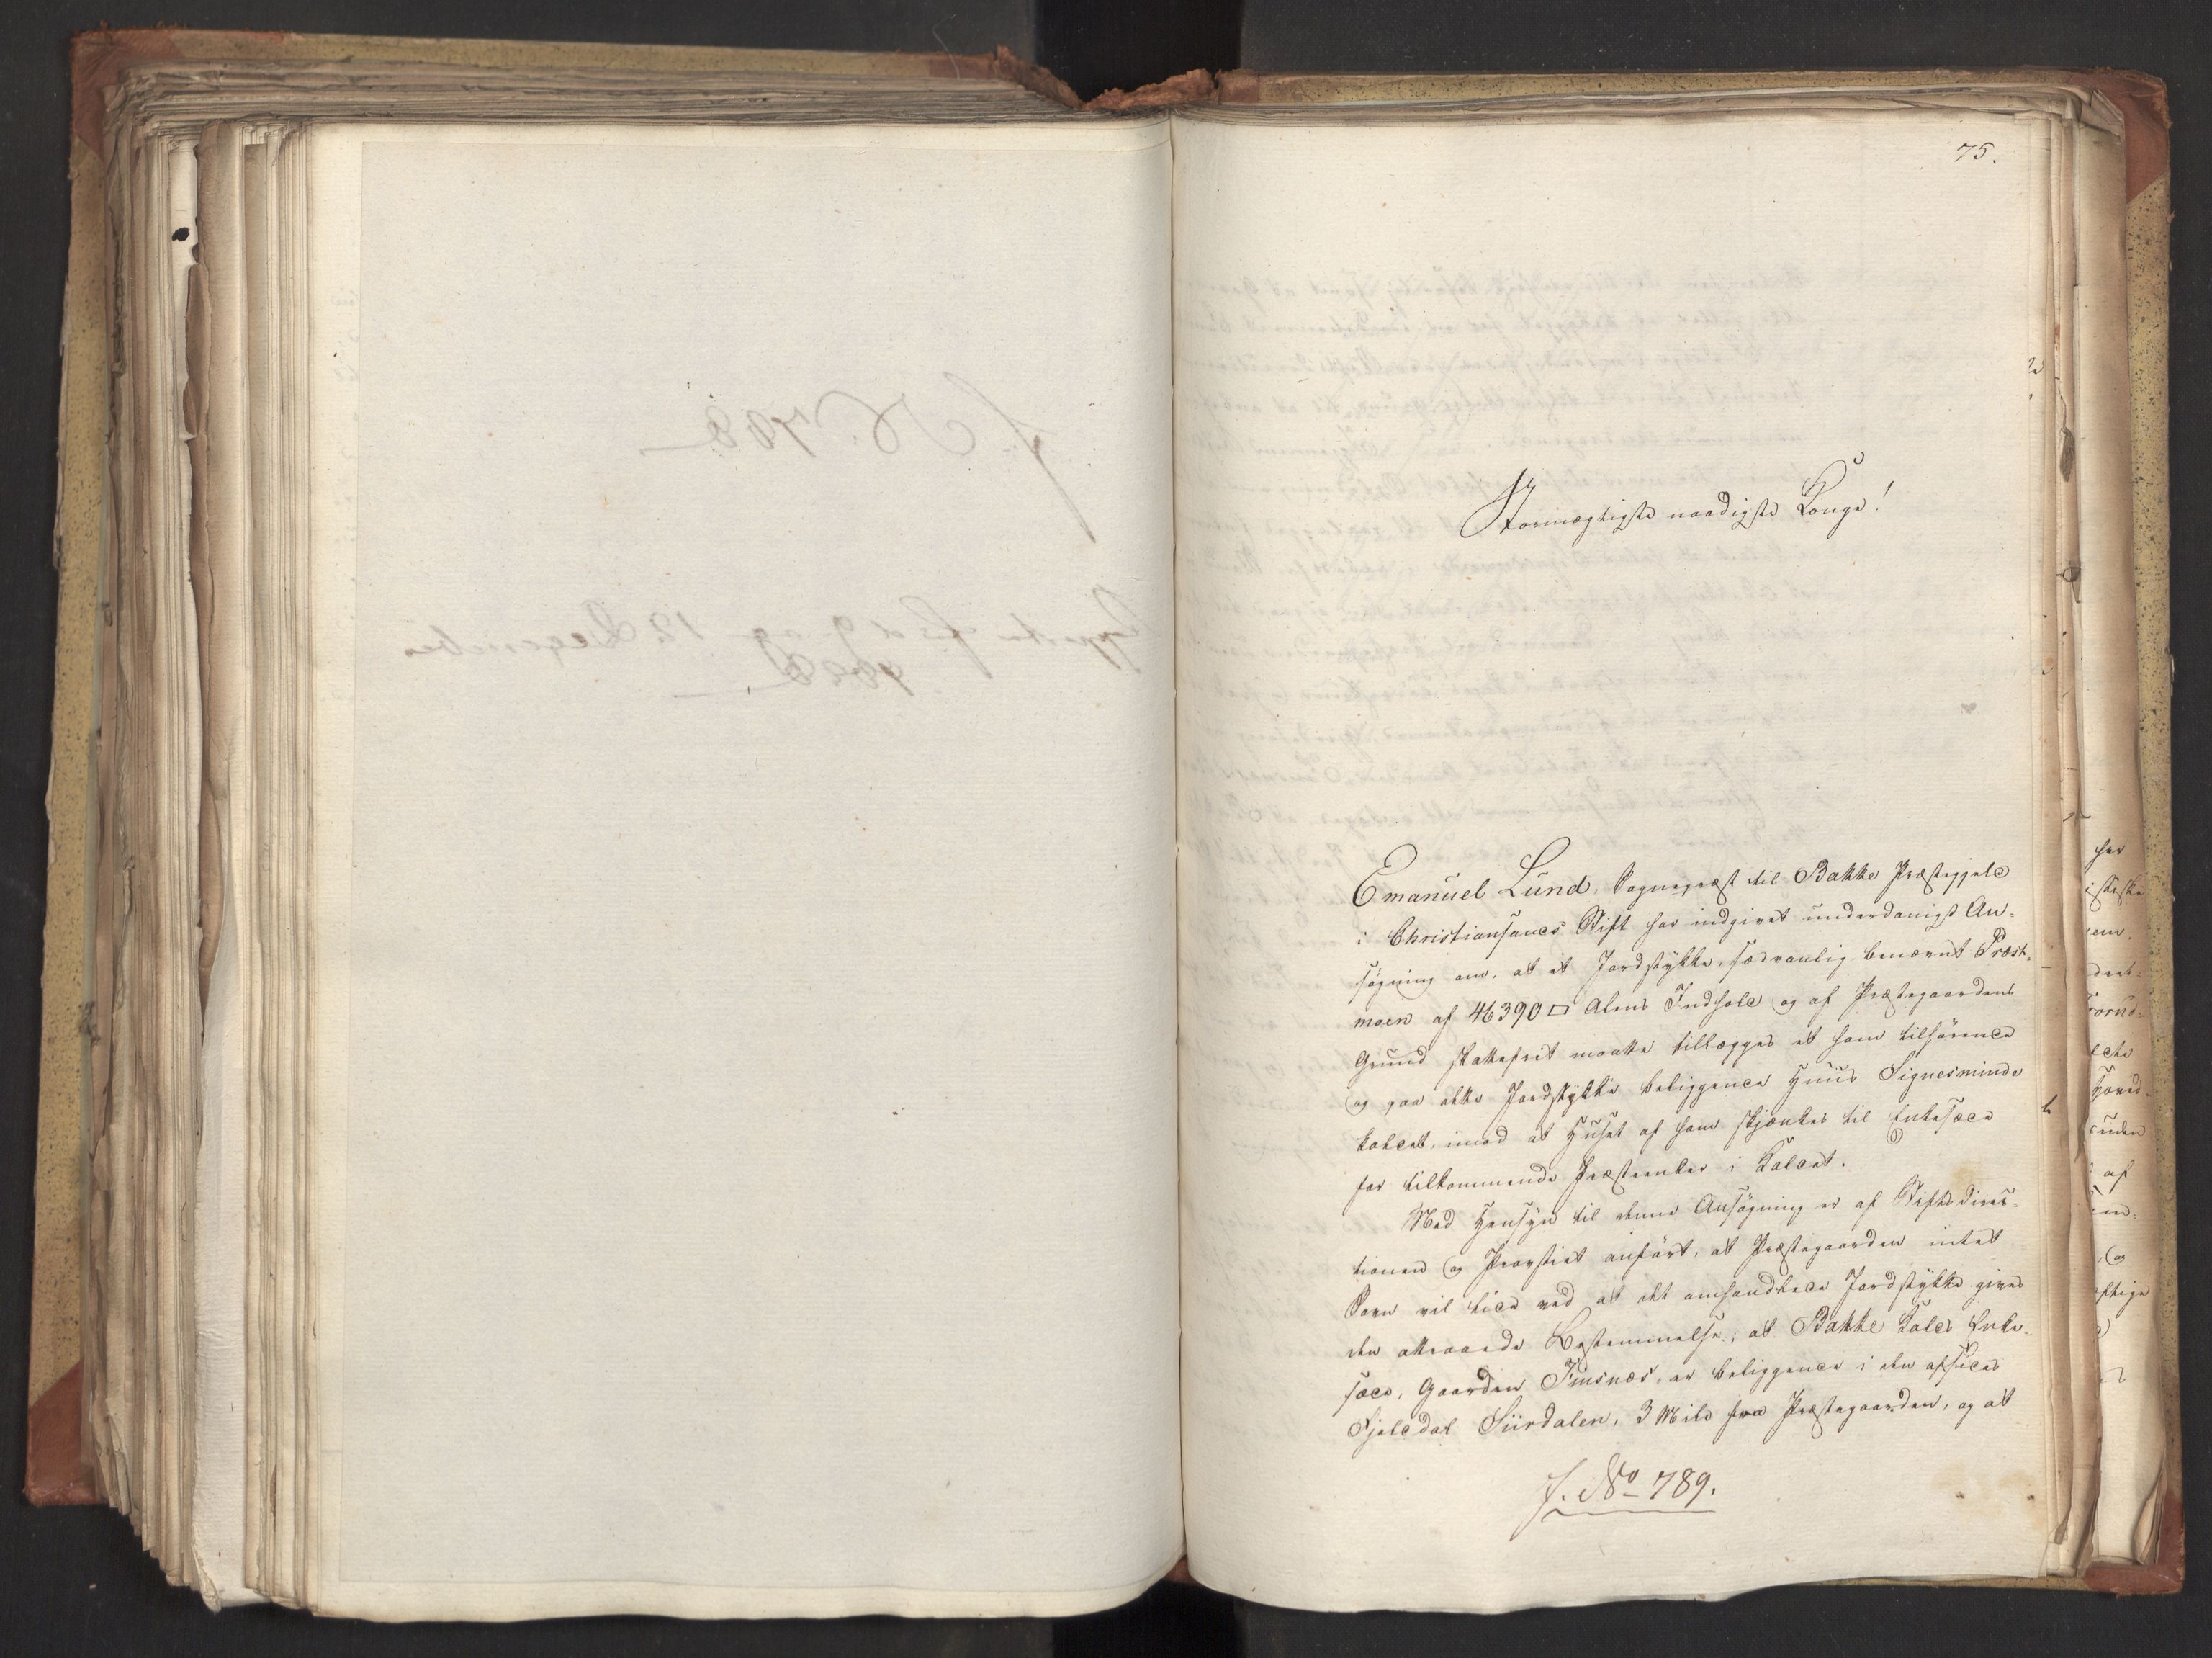 75.
Stormægtigste naadigste Konge!
Emanuel Lund, Sognepræst til Bakke Præstegjeld
i Christiansands Stift har indgivet underdanigst An-
søgning om, at et Jordstykke, sædvanlig benævnt Præst-
moen af 46390 □ Alens Indhold og af Præstegaardens
Grund skattefrit maatte tillægges et ham tilhørende
og paa dette Jordstykke beliggende Huus Signesminde
kaldet, imod at Huset af ham skjænkes til Enkesæde
for tilkommende Præsteenker i Kaldet.
Med Hensyn til denne Ansøgning er af Stiftsdirec-
tionen og Provstiet anført, at Præstegaarden intet
Savn vil lide ved at det omhandlede Jordstykke gives
den attraaede Bestemmelse; at Bakke Kalds Enke-
sæde, Gaarden Finsnæs, er beliggende i den afsides
Fjelddal Siirdalen, 3 Mile fra Præstegaarden, og at
J. No 789.